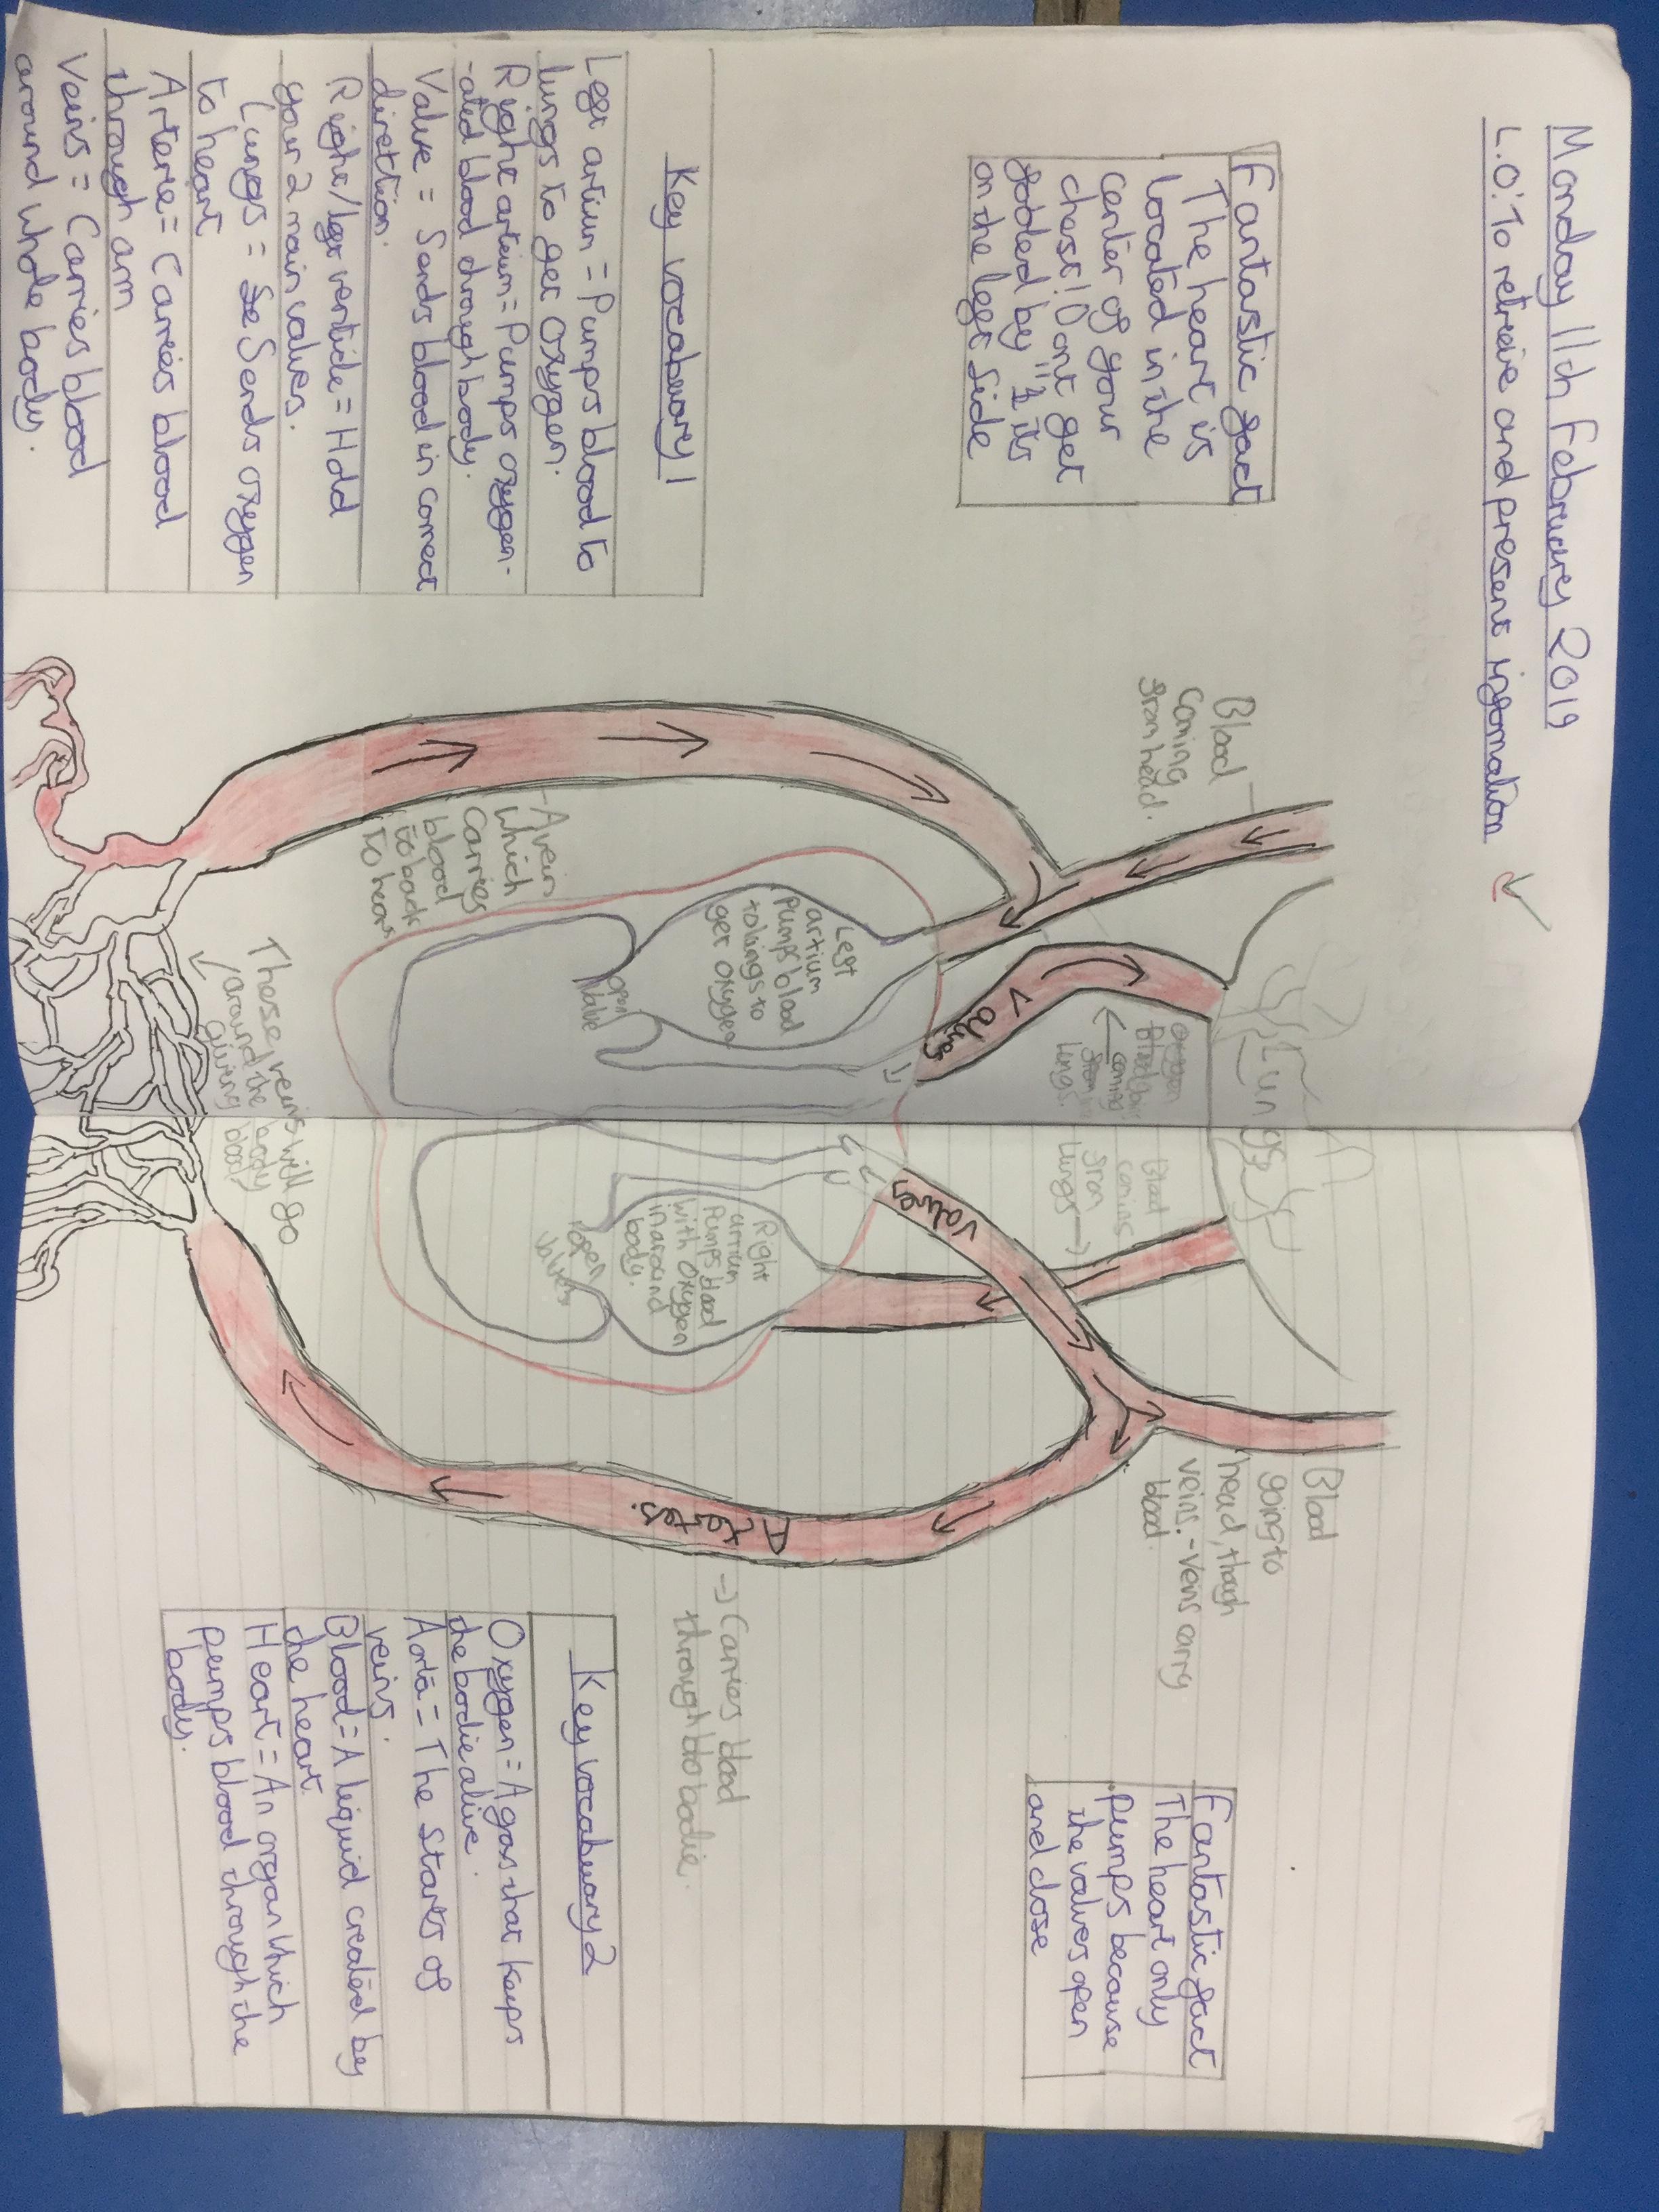 Monday 11th February 2019
L.O: To retreive and present infomation
Fantastic fact
The heart is
located in the
center of your
chest! Dont get
fooled by "its
on the left side
Key vocabuary 1
Left artium = Pumps blood to
lungs to get oxygen.
Right artium = Pumps oxygen-
-ated blood through body.
Valve = Sends blood in correct
direction.
Right/left venticle = Hold
your 2 main valves.
Lungs = Sends oxygen
to heart
Arterie = Carries blood
through arm
Veins = Carries blood
around whole body.
Blood
Coming
from head.
-A vein
which
Carries
blood
to back
to heart
Left
artium
Pumps blood
to lungs to
get oxygen
open
Valve
Valves
coming
from
lungs.
Lungs
Blood
coming
from
lungs ->
Valves
Right
atrium
Pumps blood
with oxygen
in around
body.
open
These veins will go
around the body
giving blood
Blood
going to
head, though
veins. - Veins carry
blood.
Arteries.
-> Carries blood
through bodie.
Fantastic fact
The heart only
pumps because
the valves open
and close
Key vocabuary 2
Oxygen = A gas that keeps
the bodie alive.
Aorta = The starts of
veins.
Blood = A liquid created by
the heart.
Heart = An organ which
pumps blood through the
body.